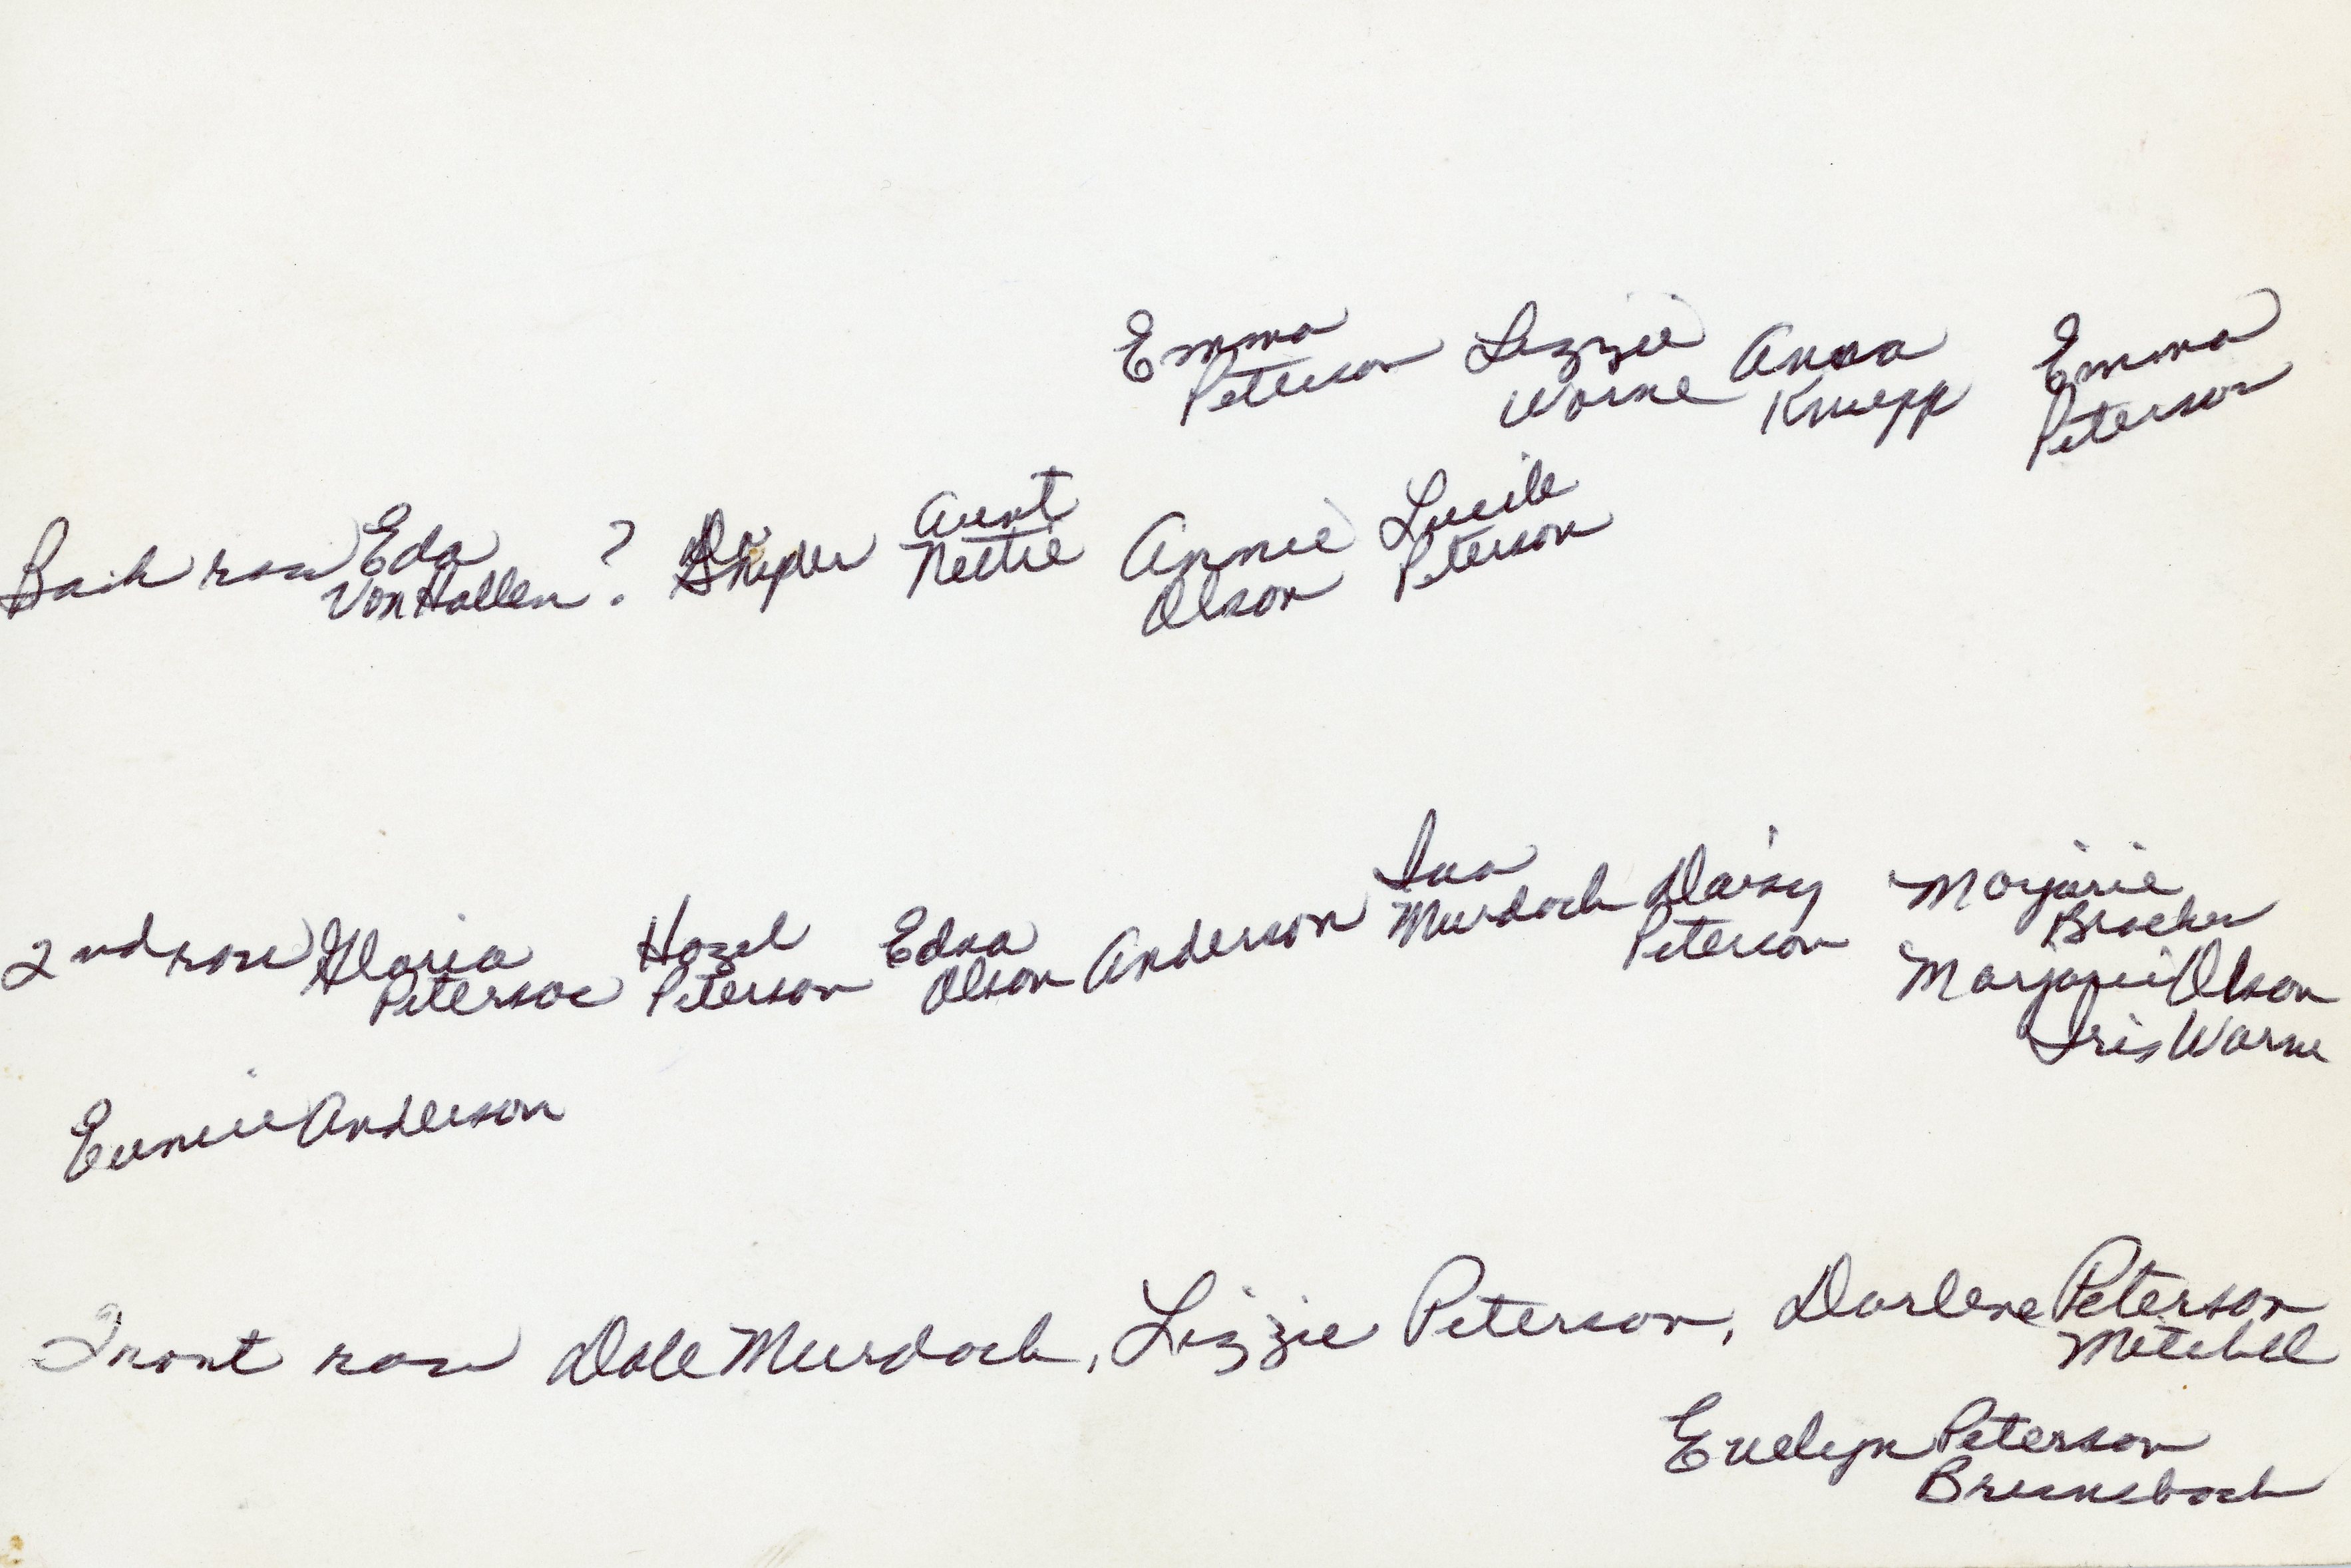 Emma Lizzie Anna Emma
Peterson Warne Knepp Peterson
Back row Eda ? Snyder Aunt Annie Lucile
Von Hallen Nettie Olson Peterson
Iva
2nd row Gloria Hazel Edna Anderson Murdoch Daisy Marjorie
Peterson Peterson Olson Peterson
Marjorie Olson
Iris Warne
Eunice Anderson
Front row Dale Murdoch, Lizzie Peterson, Darlene Peterson
Mitchell
Evelyn Peterson